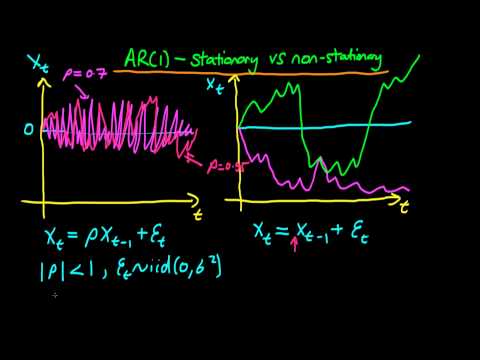 AR(1) - Stationary vs non-stationary
Xt
ρ=0.7
0
ρ=0.95
t
Xt
t
Xt = ρXt-1 + Ɛt
|ρ| < 1 , Ɛt ~ iid(0, σ²)
Xt = Xt-1 + Ɛt